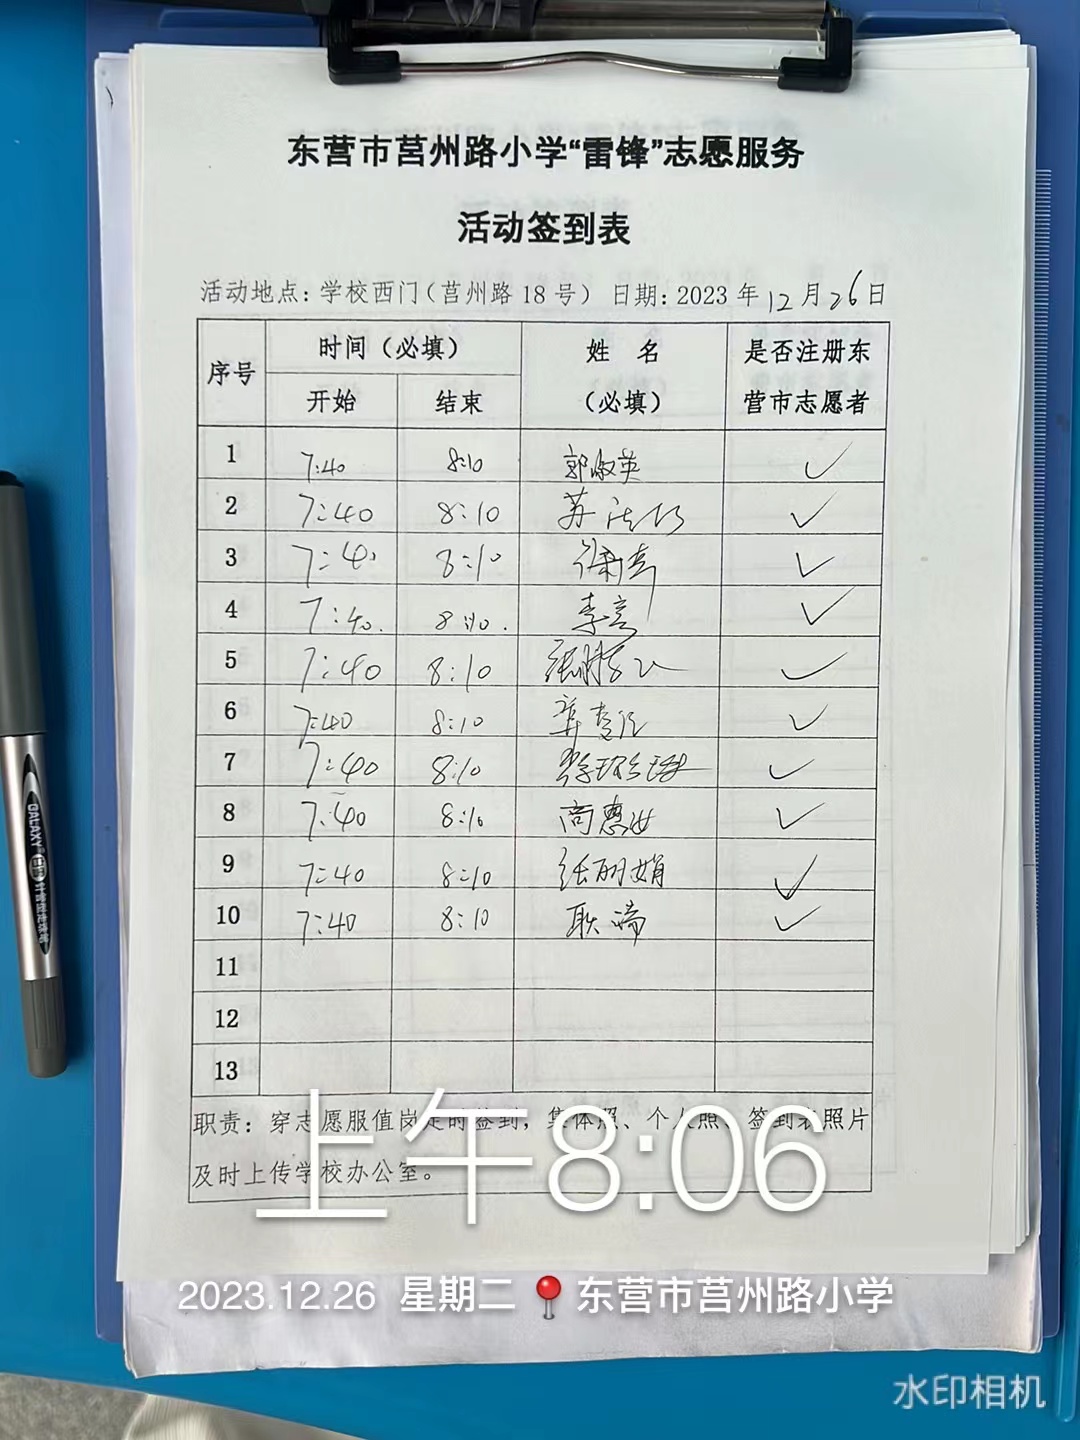 东营市莒州路小学“雷锋”志愿服务
活动签到表
活动地点：学校西门（莒州路 18 号） 日期：2023 年 12 月 26 日
序号 时间（必填） 姓 名 （必填） 是否注册东营市志愿者
开始 结束
1 7:40 8:10 郭淑英 ✓
2 7:40 8:10 苏 ✓
3 7:40 8:10 ✓
4 7:40. 8:10. 李 ✓
5 7:40 8:10 ✓
6 7:40 8:10 ✓
7 7:40 8:10 ✓
8 7:40 8:10 商惠 ✓
9 7:40 8:10 张丽娟 ✓
10 7:40 8:10 耿 ✓
11
12
13
职责：穿志愿服值岗定时签到，集体照、个人照、签到表照片
及时上传学校办公室。
上午8:06
2023.12.26 星期二 东营市莒州路小学
水印相机
GALAXY